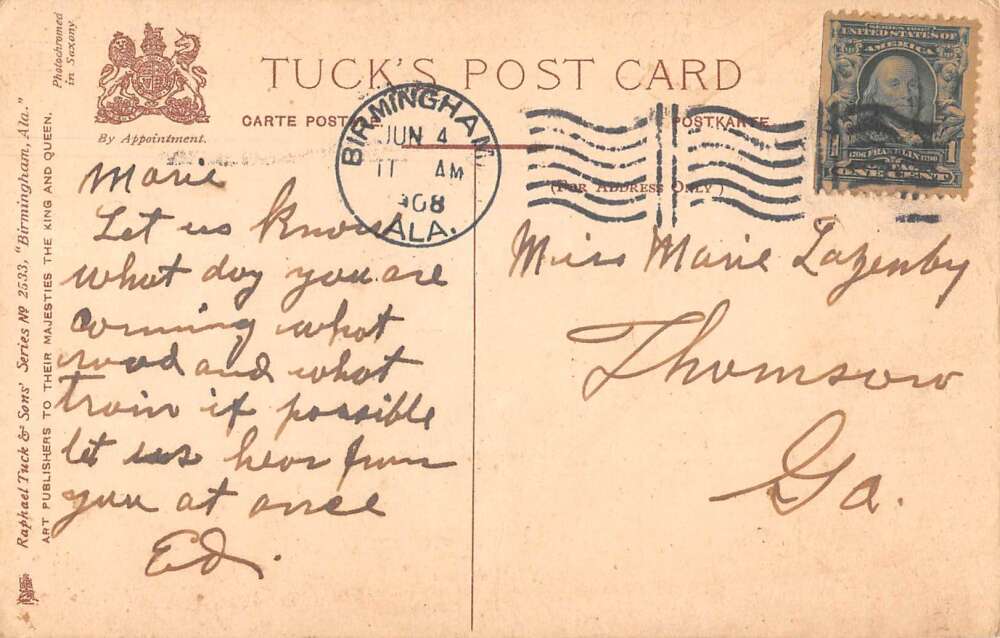 Photochromed
in Saxony
By Appointment.
TUCK'S POST CARD
CARTE POSTALE
POSTKARTE
(FOR ADDRESS ONLY)
BIRMINGHAM,
JUN 4
11 AM
1908
ALA.
SERIES 1902
UNITED STATES OF
AMERICA
1706 FRANKLIN 1790
1 1
ONE CENT
Raphael Tuck & Sons' Series No 2533, "Birmingham, Ala."
ART PUBLISHERS TO THEIR MAJESTIES THE KING AND QUEEN.
Marie
Let us know
what day you are
comming what
road and what
train if possible
let us hear from
you at once
Ed.
Miss Marie Lazenby
Thomson
Ga.